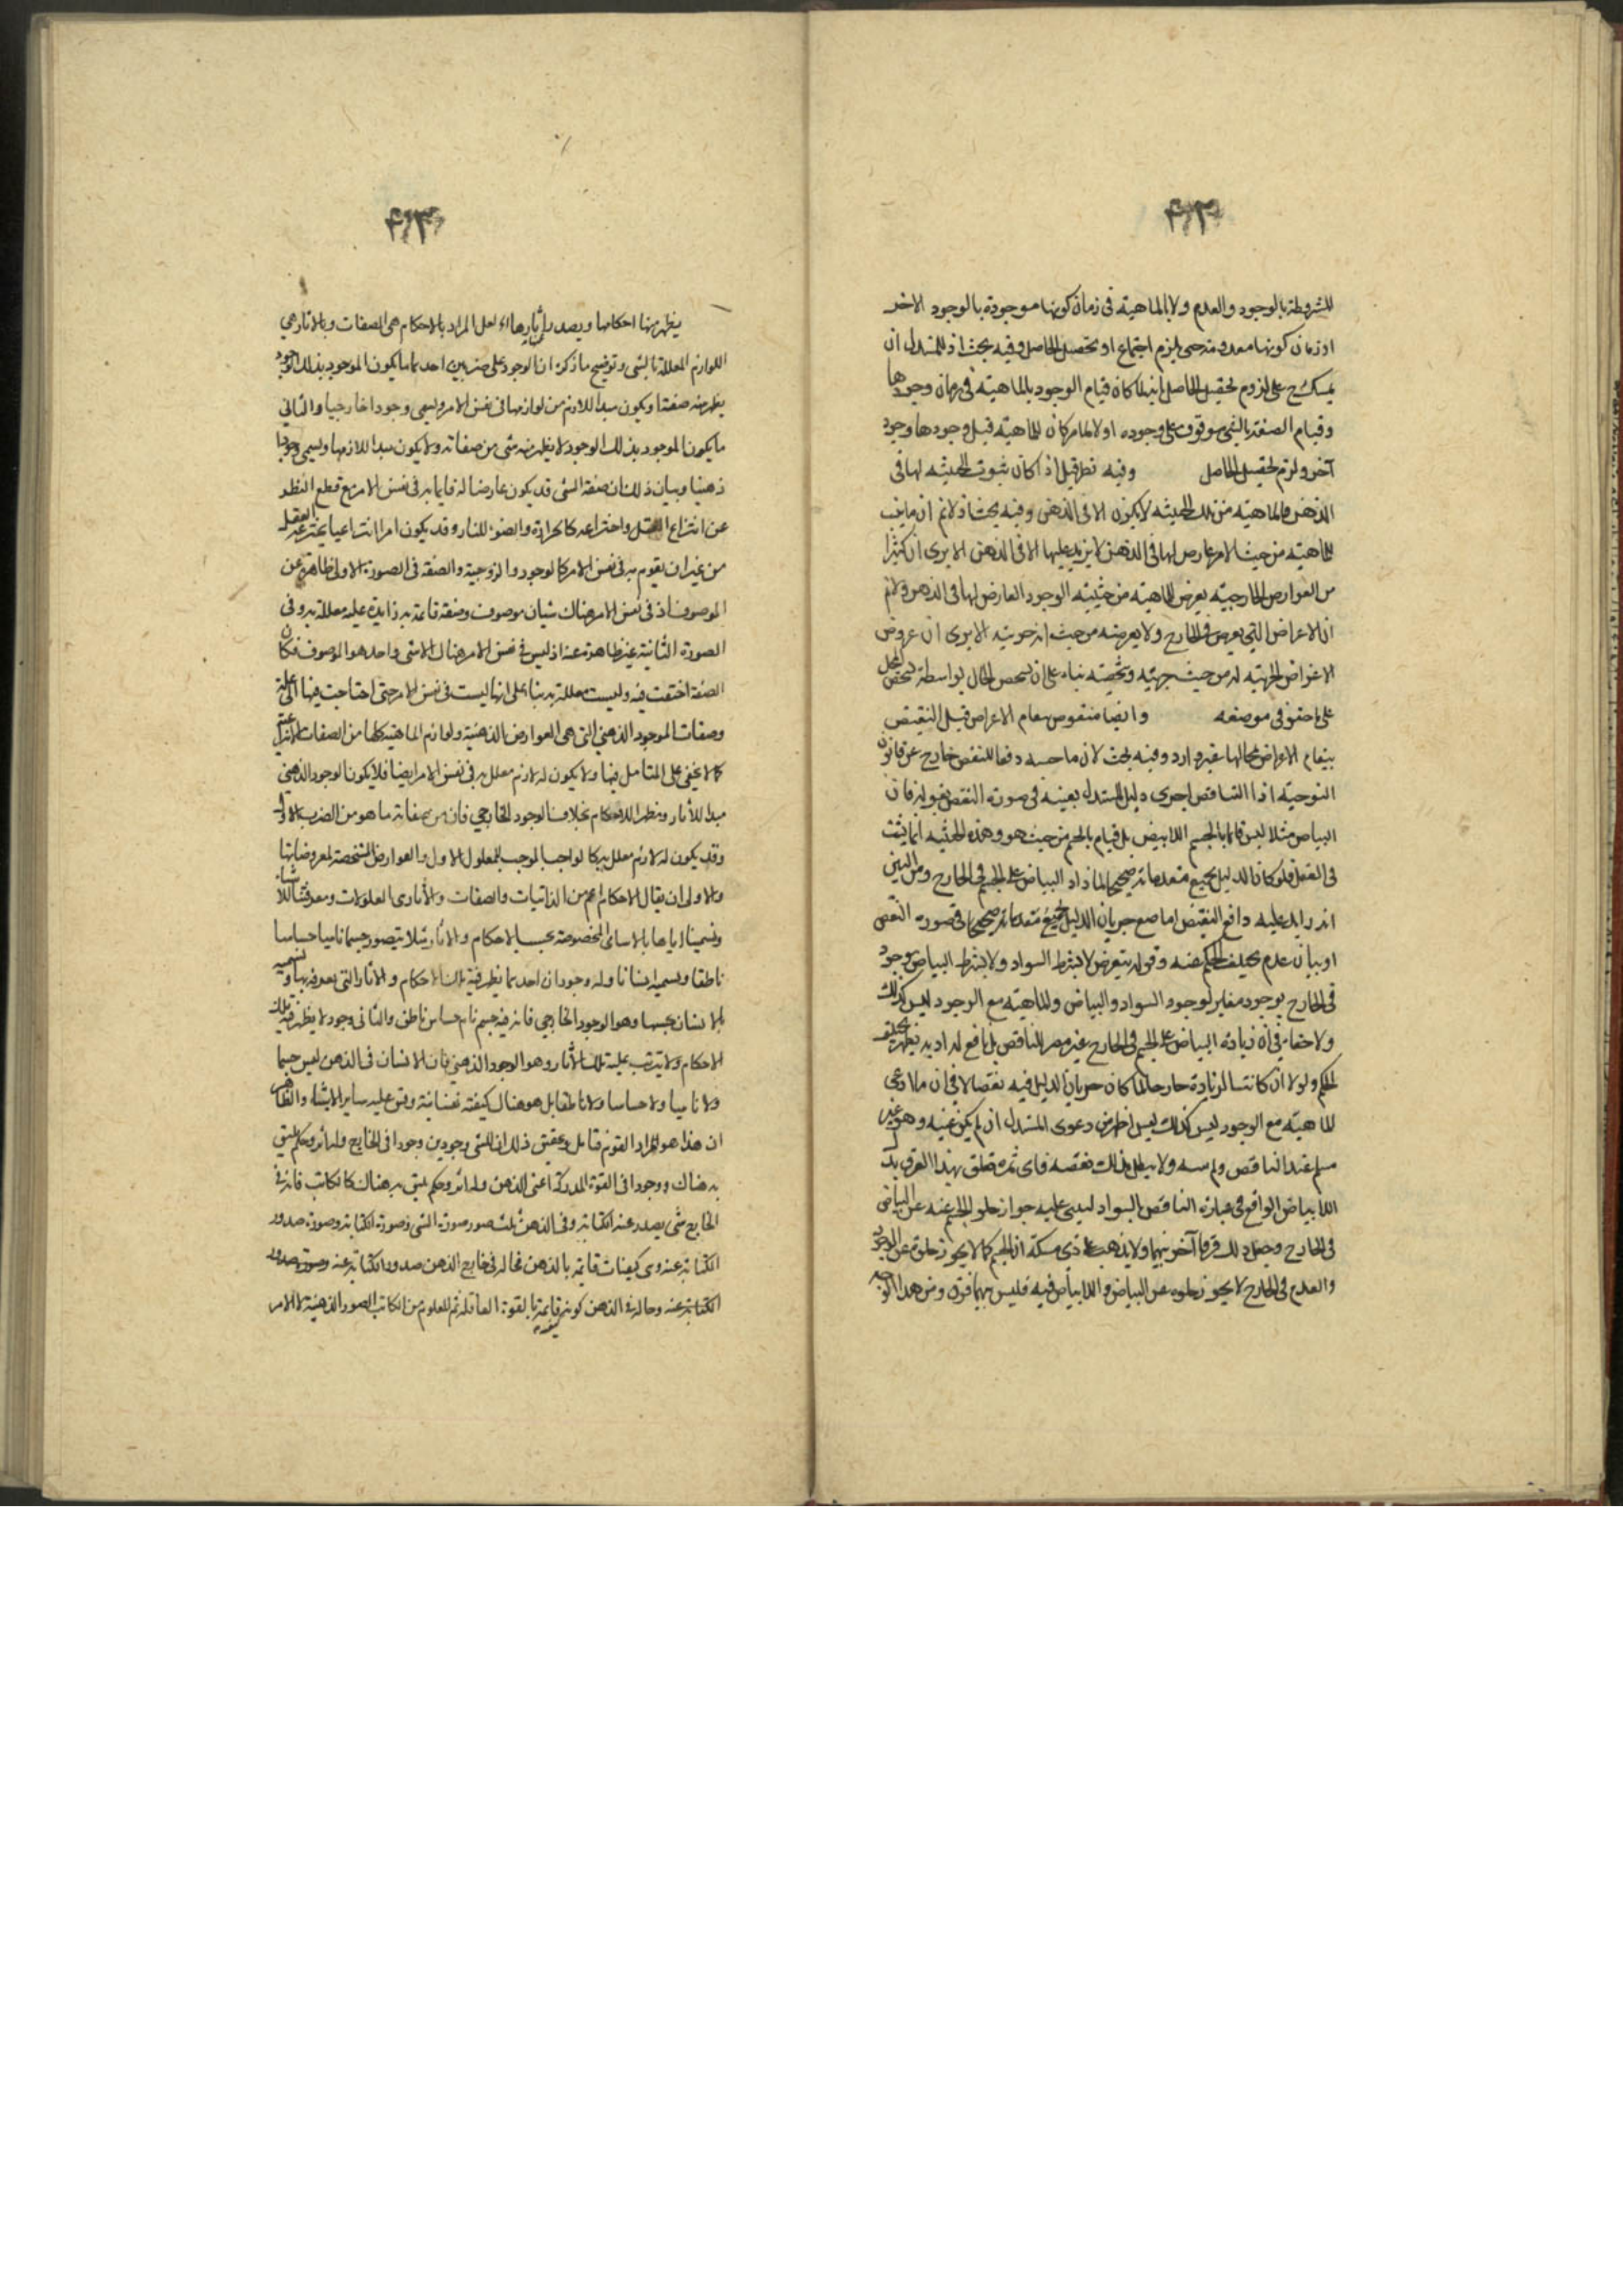 للمشروطة بالوجود والعدم ولا بالماهية فى زمان كونها موجودة بالوجود الاخر
او زمان كونها معدومة حتى يلزم اجتماع او تحصيل الحاصل وفيه بحث اذ للمستدل ان
على لزوم تحصيل الحاصل بانه لما كان قيام الوجود بالماهية فى زمان وجودها
وقيام الصفة بالشى موقوف على وجوده اولا لما مر كان للماهية قبل وجودها وجود
آخر ولزم تحصيل الحاصل وفيه نظر قيل اذا كان ثبوت الحيثيه لها فى
الذهن فالماهية من تلك الحيثيه لا يكون الا فى الذهن وفيه بحث اذ لانم ان ما يثبت
للماهية من حيث الامر عارض لها فى الذهن لا يزيد عليها الا فى الذهن الا يرى ان كثيرا
من العوارض الخارجية يعرض للماهية من حيثية الوجود العارض لها فى الذهن ولانم
ان الاعراض التى يعرض فى الخارج ولا يعرضه من حيث الا يرى ان عروض
الاعراض له من حيث بناء على ان تشخص الحال بواسطة تشخص المحل
على ما حقق فى موضعه وايضا منقوض بقيام الاعراض قيل النقيض
بقيام الاعراض بمحالها غير وارد وفيه بحث لان ما حسبه دفعا للنقض خارج عن قانون
التوجيه اذا الناقض اجرى دليل المستدل بعينه فى صورة النقض بقوله فان
البياض مثلا ليس قائما بالجسم اللا ابيض بل قيام بالجسم من حيث هو وهذه الحيثيه انما يثبت
فى العقل فلو كان الدليل بجميع مقدماته صحيحا لما زاد البياض على الجسم فى الخارج ومن البين
انه دافع النقيض اما منع جريان الدليل بجميع مقدماته فى صورة النقض
او بيان عدم تخلف الحكم عنه وقوله يتعرض لا بشرط السواد ولا بشرط البياض بوجود
فى الخارج بوجود مغاير لوجود السواد والبياض والماهية مع الوجود ليس كذلك
ولا خفاء فى ان زيادة البياض على الجسم فى الخارج غير مضر للناقض بل نافع له اذ به يظهر تخلف
الحكم ولولا ان كانت الزيادة خارجا لما كان جريان الدليل فيه نقضا لا فى ان ما ادعى
للماهية مع الوجود ليس كذلك ليس دعوى المستدل ان لم يكن عينه وهو غير
مسلم عند الناقض ولا يبطل بذلك نقضه فاى ثمرة تعلق بهذا الفرق
اللا بياض الواقع فى عبارة الناقض بالسواد ليبنى عليه جواز خلو الجسم عنه عن البياض
فى الخارج وجعل ذلك فرقا آخر بينهما ولا يذهب على ذى مسكة ان الجسم كما لا يجوز خلوه عن الوجود
والعدم فى الخارج لا يجوز خلوه عن البياض واللا بياض فيه فليس بينهما فرق ومن هذا الوجه
يظهر منها احكامها ويصدر عنها آثارها اه لعل المراد بالاحكام هى الصفات وبالاثار هى
اللوازم المعللة بالشى وتوضيح ما ذكره ان الوجود على ضربين احدهما ما يكون الموجود بذلك الوجود
يظهر منه صفة او يكون مبدا للازم من لوازمها فى نفس الامر ويسمى وجودا خارجيا والثانى
ما يكون الموجود بذلك الوجود لا يظهر منه شى من صفاته ولا يكون مبدا للازمها ويسمى وجودا
ذهنيا وبيان ذلك ان صفة الشى قد يكون عارضا له قايما به فى نفس الامر مع قطع النظر
عن انتزاع العقل واختراعه كالحرارة والضوء للنار وقد يكون امرا انتزاعيا يخترعه العقل
من غير ان يقوم به فى نفس الامر كالوجود والزوجية والصفة فى الصورة الاولى ظاهرة عن
الموصوف اذ فى نفس الامر هناك شيان موصوف وصفة قائمة به زايدة عليه معللة به وفى
الصورة الثانية غير ظاهرة عنه اذ ليس فى نفس الامر هناك الا شى واحد هو الموصوف فكان
الصفة اختفت فيه وليست معللة به بناء على انها ليست فى نفس الامر حتى احتاجت فيها الى علة
وصفات الموجود الذهنى التى هى العوارض الذهنية ولوازم الماهية كلها من الصفات الانتزاعية
كما لا يخفى على المتامل فيها ولا يكون له لازم معلل به فى نفس الامر ايضا فلا يكون الوجود الذهنى
مبدا للآثار ومظهرا للاحكام بخلاف الوجود الخارجى فان من صفاته ما هو من الضرب الاول
وقد يكون له لازم معلل به كالواجب الموجب للمعلول الاول والعوارض المشخصة لمعروضاتها
والاولى ان يقال الاحكام اعم من الذاتيات والصفات والآثار
وتسميتنا اياها بالاسامى المخصوصة بحسب الاحكام والاثار مثلا يتصور جسما ناميا حساسا
ناطقا ويسميه انسانا وله وجودان احدهما يظهر فيه تلك الاحكام والاثار التى يعرفه بها ويسميه
بالانسان بحسبها وهو الوجود الخارجى فانه فيه جسم نام حساس ناطق والثانى وجود لا يظهر فيه تلك
الاحكام ولا يترتب عليه تلك الآثار وهو الوجود الذهنى فان الانسان فى الذهن ليس جسما
ولا ناميا ولا حساسا ولا ناطقا بل هو هناك كيفية نفسانية وقس عليه ساير الاشياء والظاهر
ان هذا هو مراد القوم فتامل وتحقيق ذلك ان للشى وجودين وجودا فى الخارج وله اثر وحكم يليق
به هناك ووجودا فى القوة المدركة اعنى الذهن وله اثر وحكم يليق به هناك كالكاتب فانه فى
الخارج شى يصدر عنه الكتابة وفى الذهن ثلث صور صورة الشى وصورة الكتابة وصورة صدور
الكتابة عنه وهى كيفيات قائمة بالذهن فحاله فى خارج الذهن صدور الكتابة عنه وصورة صدور
الكتابة عنه وحاله فى الذهن كونه قائمة بالقوة العاقلة ثم المعلوم من الكاتب الصور الذهنية لا الامر